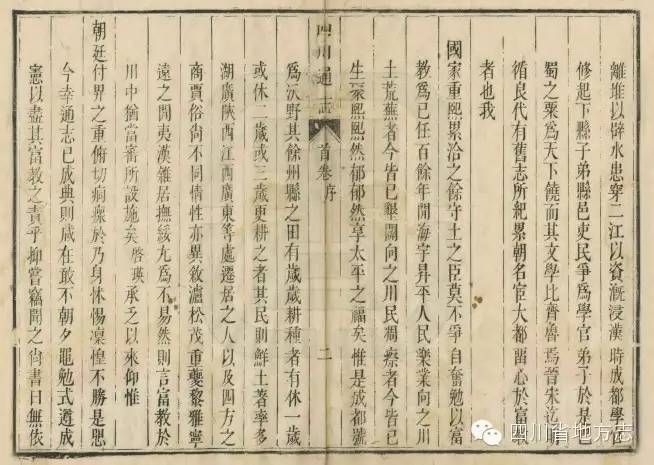 離堆以辟水患穿二江以資溉浸漢時成都學官
修起下縣子弟縣邑吏民爭爲學官弟子於是巴
蜀之粟爲天下饒而其文學比齊魯焉晉宋迄明
循良代有舊志所紀累朝名宦大都畱心於富教
者也我
國家重熙累洽之餘守土之臣莫不爭自奮勉以富
教爲已任百餘年間海宇昇平人民樂業向之川
土荒蕪者今皆已墾闢向之川民凋瘵者今皆已
生聚熙熙然郁郁然享太平之福矣惟是成都號
四川通志
首卷序
二
爲沃野其餘州縣之田有歲歲耕種者有休一歲
或休二歲或三歲更耕之者其民則鮮土著率多
湖廣陝西江西廣東等處遷居之人以及四方之
商賈俗尚不同情性亦異敘瀘松茂重夔黎雅寧
遠之間夷漢雜居撫綏尤爲不易然則言富教於
川中猶當審所設施矣啓瑛承乏以來仰惟
朝廷付畀之重俯切痌瘝於乃身怵惕凜惶不勝是懼
今幸通志已成典則咸在敢不朝夕黽勉式遵成
憲以盡其富教之責乎抑嘗竊聞之尚書曰無依
四川省地方志